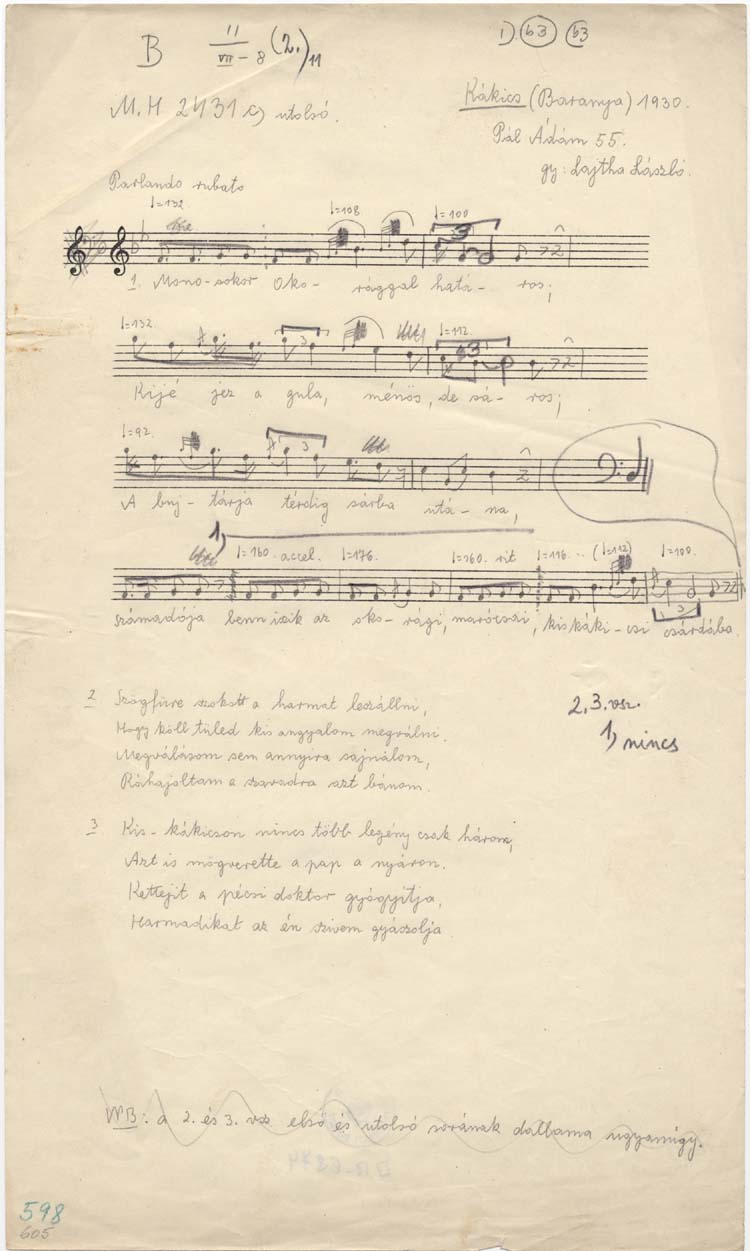 B II/VII-8 (2.) 11
1) 63 63
M.H 2431 c) utolsó.
Kákics (Baranya) 1930.
Pál Ádám 55.
gy: Lajtha László.
Parlando rubato
♩=132 ♩=108 ♩=100
3
1. Mono-sokor Oko- rággal hatá- ros;
♩=132 ♩=112
3 3
Kijé jez a gula, ménös, de sá- ros;
♩=92.
3
A buj- tárja térdig sárba utá- na,
1)
♩=160. accel. ♩=176. ♩=160. rit ♩=116... (♩=112) ♩=100.
3
számadója benn iszik az oko- rági, marócsai, kiskáki-csi csárdába.
2 Szögfüre szokott a harmat leszállni,
Hogy köll tüled kis angyalom megválni.
Megválásom sem annyira sajnálom,
Ráhajoltam a szavadra azt bánom.
2. 3. vsz.
1) nincs
3 Kis-kákicson nincs több legény csak három,
Azt is mögverette a pap a nyáron.
Kettejit a pécsi doktor gyógyítja,
Harmadikat az én szivem gyászolja.
NB: a 2. és 3. vsz első és utolsó sorának dallama ugyanúgy.
598
605